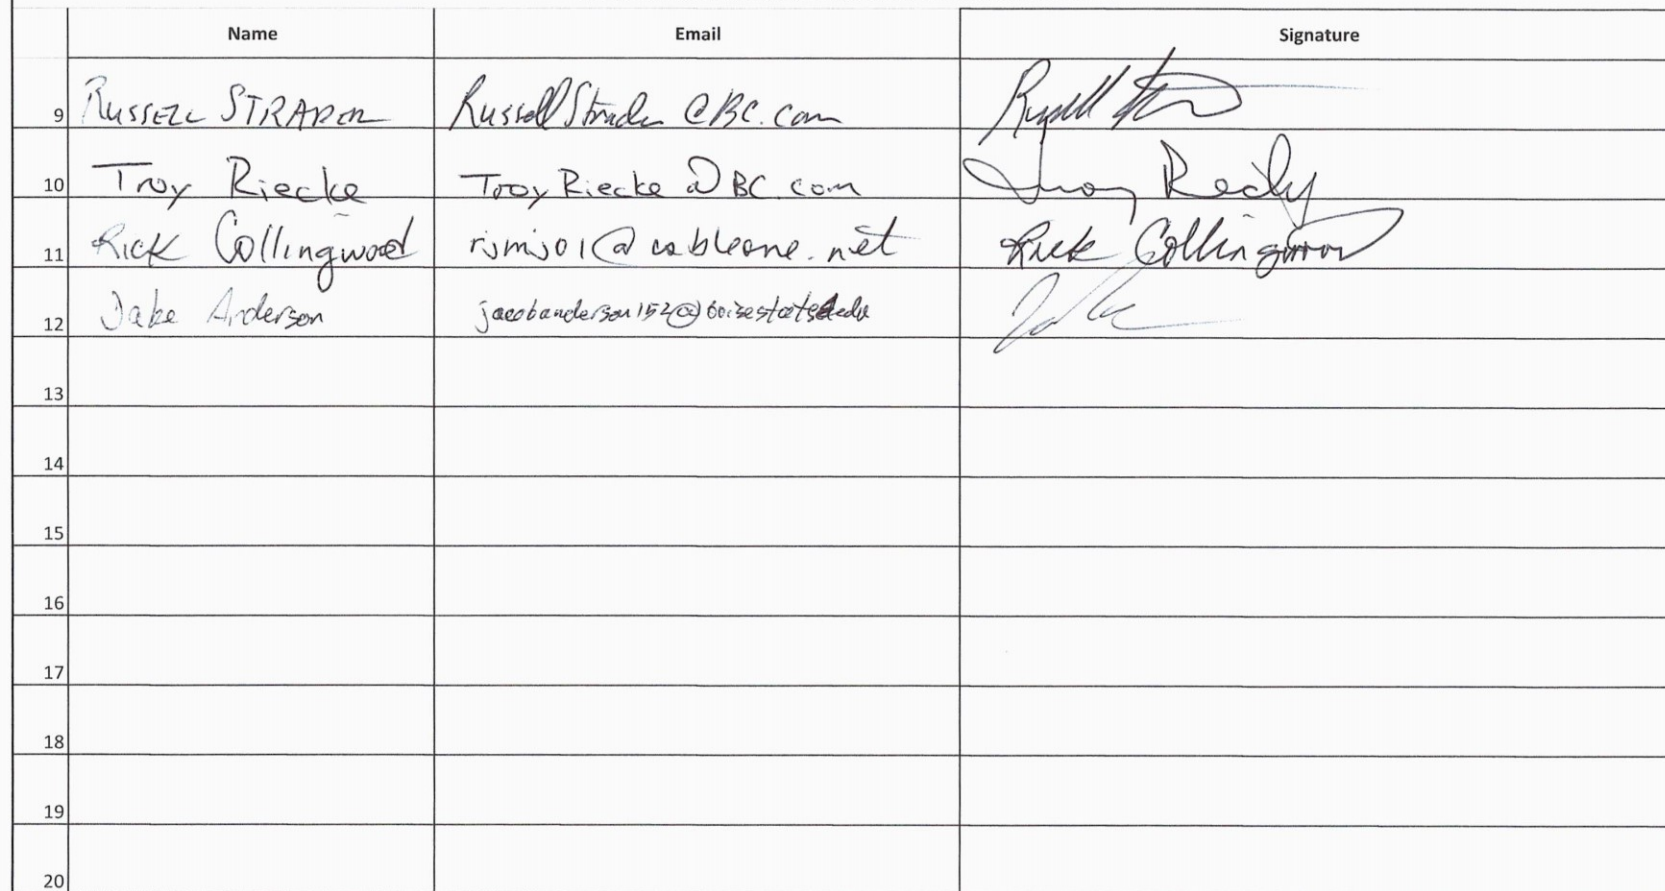 Name Email Signature
9 Russell STRADER RussellStrader@BC.com
10 Troy Riecke TroyRiecke@BC.com Troy Riecke
11 Rick Collingwood rjmjo1@cableone.net Rick Collingwood
12 Jake Anderson jacobanderson152@boisestate.edu
13
14
15
16
17
18
19
20